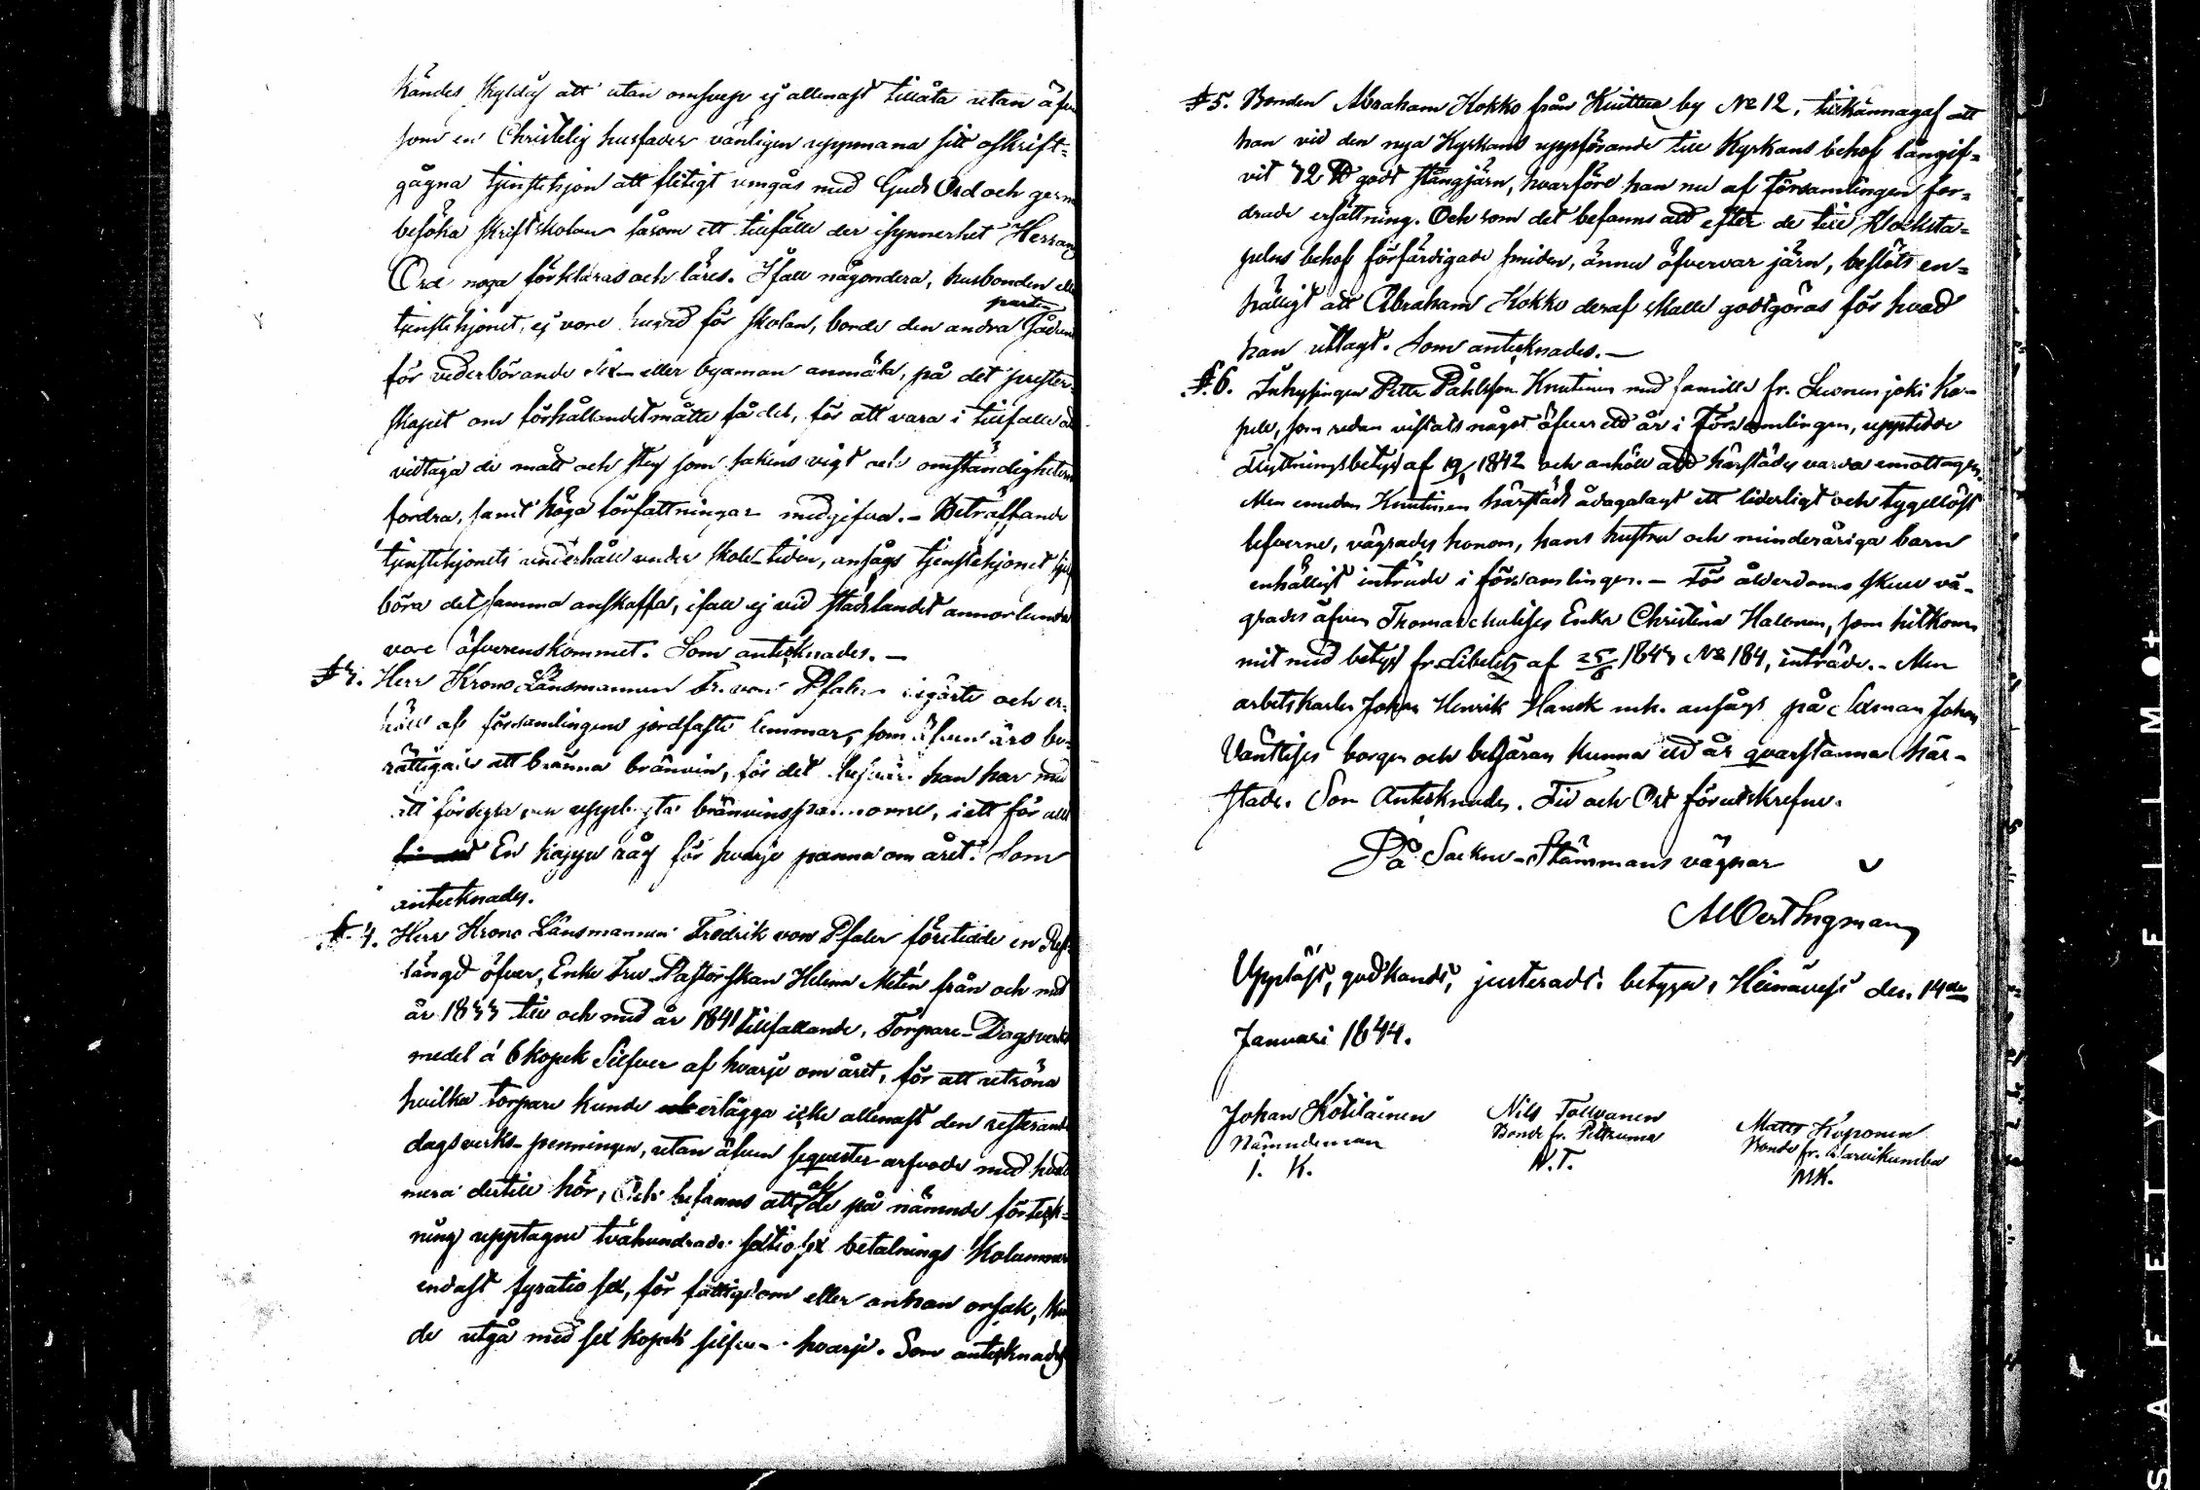 kändes skyldig att utan omsvep ej allenast tillåta utan äfven
som en Christelig husfader vänligen uppmana sitt oskrift-
gågna tjenstehjon att flitigt umgås med Guds Ord och gerna
besöka skriftskolan såsom ett tillfälle der isynnerhet Herrans
Ord noga förklaras och läres. Ifall någondera, husbonden eller
tjenstehjonet, ej vore hugad för skolan, borde den andra parten sådant
för vederbörande sex- eller byaman anmäla, på det prester-
skapet om förhållandet måtte få del, för att vara i tillfälle att
vidtaga de mått och steg som sakens vigt och omständigheterna
fordra, samt höga författningar medgifva. - Beträffande
tjenstehjonets underhåll under skole-tiden, ansågs tjenstehjonet sjelf
böra det samma anskaffa, ifall ej vid stadslandet annorlunda
vore öfverenskommet. Som antecknades. -
§ 3. Herr Krono Länsmannen Fr. von Pfaler begärte och er-
höll af församlingens jordfaste lemmar, som äfven äro be-
rättigade att bränna bränvin, för det besvär han har med
att försegla och uppbryta bränvinspannorne, i ett för allt
En kappe råg för hvarje panna om året. Som
antecknades.
§ 4. Herr Krono Länsmannen Fredrik von Pfaler företedde en Rest-
längd öfver, Enke Fru Pastorskan Helena Metén från och med
år 1833 till och med år 1841 tillfallande, Torpare-Dagsverks
medel á 6 kopek Silfver af hvarje om året, för att utröna
hvilka torpare kunde erlägga icke allenast den resterande
dagsverks-penningen, utan äfven sequester arfvode med hvad
mera dertill hör, Och befanns att af de på nämnde förteck-
ning upptagne tvåhundrade sextio sex betalnings Kolumner
endast fyratio sex, för fattigdom eller annan orsak, kun
de utgå med sex kopek silfver hvarje. Som antecknades
§ 5. Bonden Abraham Kokko från Kuittua by No 12. tillkännagaf att
han vid den nya Kyrkans uppförande till Kyrkans behof långif-
vit 72 ℔ godt stångjärn, hvarföre han nu af Församlingen for-
drade ersättning. Och som det befanns att efter de till Klocksta-
pelns behof förfärdigade smiden, ännu öfvervar järn, beslöts en-
hälligt att Abraham Kokko deraf skulle godtgöras för hvad
han utlagt. Som antecknades. -
§. 6. Inhysingen Petter Påhlsson Knutinen med famille fr. Leivonjoki Ka-
pell, som redan vistats något öfver ett år i Församlingen, uppteddе
flyttningsbetyg af 1842 och anhöll att härstädes varda emottagen.
Men emedan Knutinen härstäds ådagalagt ett liderligt och tygellöst
lefverne, vägrades honom, hans hustru och minderåriga barn
enhälligt inträde i församlingen. - För ålderdoms skull vä-
grades äfven Thomas Enka Christina Halonen, som hitkom-
mit med betyg fr. Libelitz af 1843 No 184, inträde. - Men
arbetskarlen Johan Henrik Hansk ansågs på Sexman Johan
borgen och begäran kunna ett år qvarstanna här-
städs. Som Antecknades. Tid och Ort förutskrefne.
På Sockne-Stämmans vägnar
Albert Ingman
Uppläst, godkändt, justeradt. betyga, Heinävesi den 14de
Januari 1844.
Johan Kotilainen Nils Tolvanen Matts Koponen
Nämndeman Bonde fr. Petruma Bonde fr. Sarvikumbu
I. K. N.T. MK.
SAFETY ▲ FILM